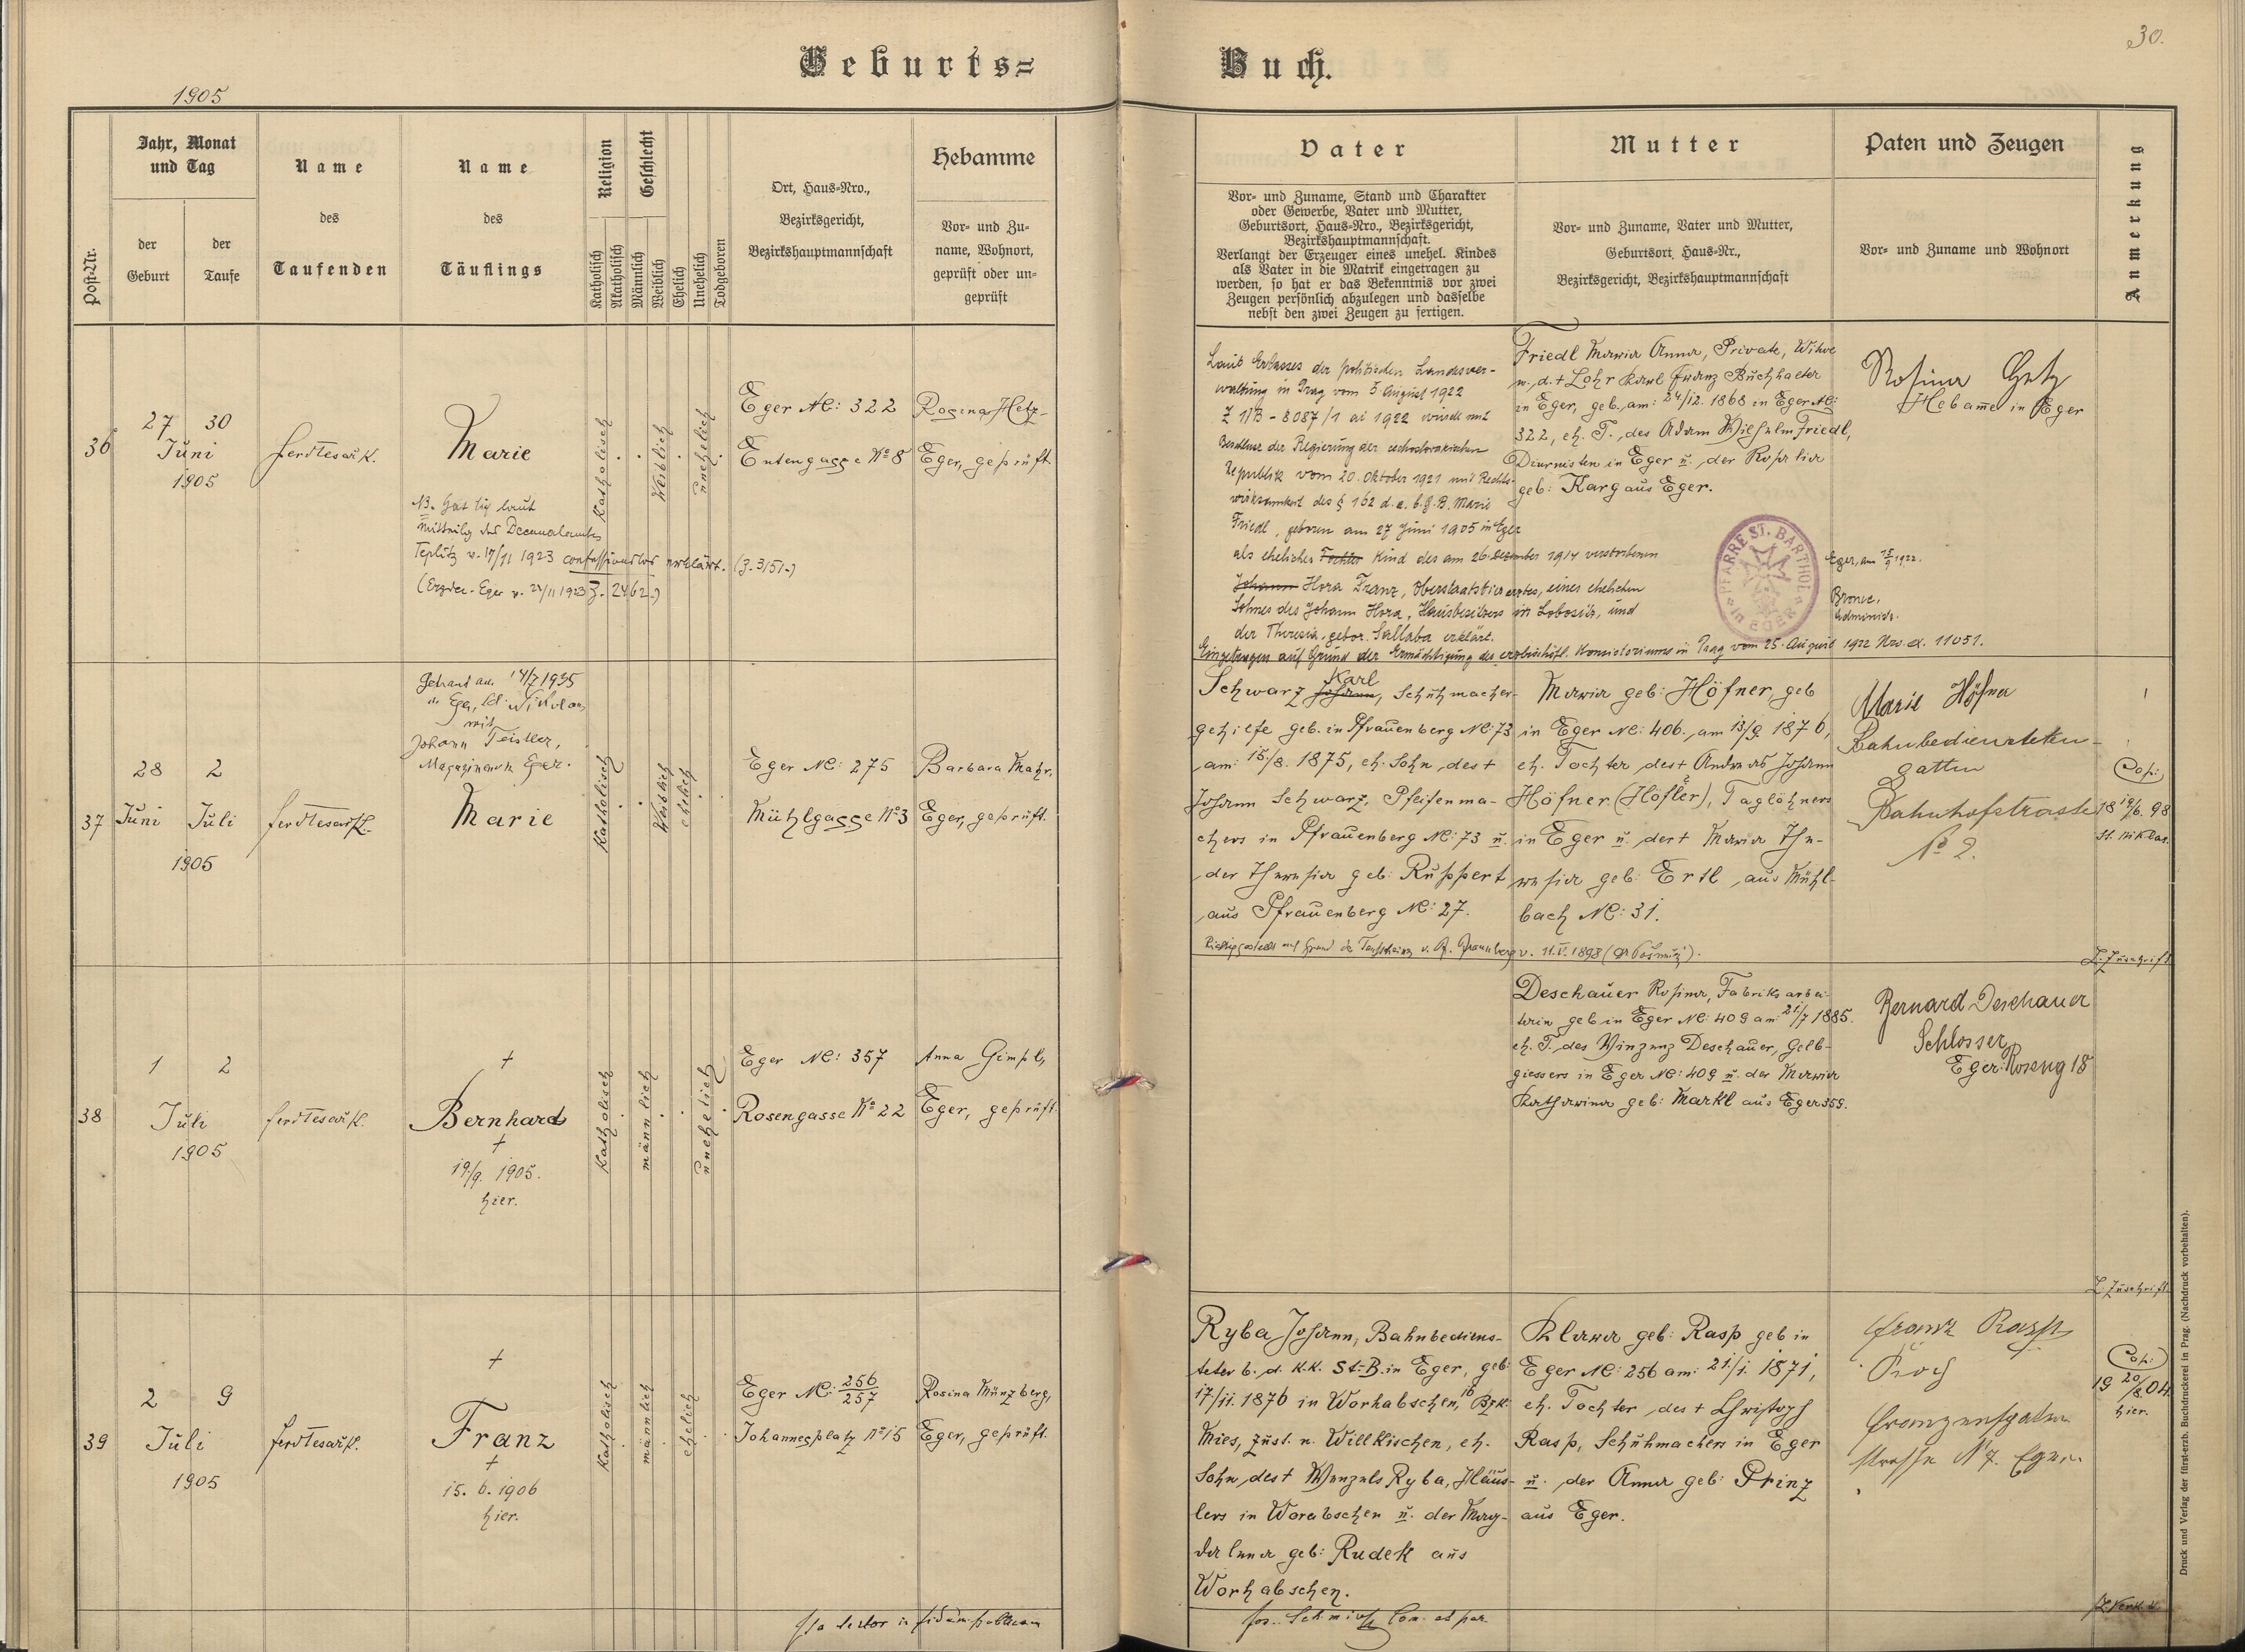 30.
Geburts=
Buch.
1905
Post-Nr.
Jahr, Monat
und Tag
der
Geburt
der
Taufe
Name
des
Taufenden
Name
des
Täuflings
Religion
Katholisch
Akatholisch
Geschlecht
Männlich
Weiblich
Ehelich
Unehelich
Todgeboren
Ort, Haus-Nro.,
Bezirksgericht,
Bezirkshauptmannschaft
Hebamme
Vor- und Zu-
name, Wohnort,
geprüft oder un-
geprüft
Vater
Vor- und Zuname, Stand und Charakter
oder Gewerbe, Vater und Mutter,
Geburtsort, Haus-Nro., Bezirksgericht,
Bezirkshauptmannschaft.
Verlangt der Erzeuger eines unehel. Kindes
als Vater in die Matrik eingetragen zu
werden, so hat er das Bekenntnis vor zwei
Zeugen persönlich abzulegen und dasselbe
nebst den zwei Zeugen zu fertigen.
Mutter
Vor- und Zuname, Vater und Mutter,
Geburtsort, Haus-Nr.,
Bezirksgericht, Bezirkshauptmannschaft
Paten und Zeugen
Vor- und Zuname und Wohnort
Anmerkung
36
27 30
Juni
1905
Marie
Katholisch
Weiblich
unehelich
Eger NC: 322
Entengasse No 8
Rosina Hetz
Eger, geprüft.
NB. Hat sich laut
Teplitz v. 17/11 1923 confessionslos erklärt. (Z. 3151.)
Laut Erlasses der politischen Landesver-
waltung in Prag vom 5 August 1922
Z 11B - 8087/1 ai 1922 wurde mit
Republik vom 20. Oktober 1921 mit Rechts-
wirksamkeit des § 162 d. a. b. G. B. Marie
Friedl, geboren am 27 Juni 1905 in Eger
als eheliches Tochter Kind des am 26. Dezember 1914 verstorbenen
Johann Hora Franz, Oberstaatstierarztes, eines ehelichen
Sohnes des Johann Hora, Hausbesitzers in Lobositz, und
der Theresia, gebor. Sallaba erklärt.
Eingetragen auf Grund der Ermächtigung des erzbischöfl. Konsistoriums in Prag vom 25. August 1922 Nro. 11051.
Friedl Maria Anna, Private, Witwe
n. d. + Lohr Karl Franz Buchhalter
in Eger, geb. am: 24/12. 1868 in Eger NC:
322, eh. T. des Adam Wilhelm Friedl,
Diurnisten in Eger u. der Rosalia
geb: Karg aus Eger.
PFARRE ST. BARTHOL. IN EGER
Rosina Hetz
Hebamme in Eger
37
28 2
Juni Juli
1905
Getraut am 14/7 1935
mit
Johann Teistler,
Marie
Katholisch
Weiblich
ehelich
Eger NC: 275
Mühlgasse No 3
Barbara Mahr,
Eger, geprüft.
Karl
Schwarz Johann, Schuhmacher-
gehilfe geb. in Pfrauenberg NC: 73
am: 15./8. 1875, eh. Sohn des +
Johann Schwarz, Pfeifenma-
chers in Pfrauenberg NC: 73 u.
der Theresia geb: Ruppert
aus Pfrauenberg NC: 27.
Maria geb: Höfner, geb
in Eger NC: 406. am 13/9. 1876,
eh. Tochter des + Andreas Johann
Höfner (Höfler), Taglöhners
in Eger u. der + Maria The-
resia geb: Ertl aus Mühl-
bach NC: 31.
Marie Höfner
Bahnbediensteten-
gattin
Bahnhofstrasse
No 2.
Cop:
18 14/6. 98
St. Niklas.
Z. Zuschrift
38
1 2
Juli
1905
+
Bernhard
+
19/9. 1905.
hier.
Katholisch
männlich
unehelich
Eger NC: 357
Rosengasse No 22
Anna Gimpl,
Eger, geprüft.
Deschauer Rosina, Fabriksarbei-
terin geb in Eger NC: 409 am: 21/7 1885.
eh. T. des Vinzenz Deschauer, Gelb-
giessers in Eger NC: 409 u. der Maria
Katharina geb: Markl aus Eger 359.
Bernard Deschauer
Schlosser,
Eger: Roseng 18
Z. Zuschrift
39
2 9
Juli
1905
+
Franz
+
15. 6. 1906
hier.
Katholisch
männlich
ehelich
Eger NC: 256/257
Johannesplatz No 15
Rosina Münzberg,
Eger, geprüft.
Ryba Johann, Bahnbediens-
teter b. d. K.K. St-B. in Eger, geb:
17/11. 1876 in Worhabschen, 16 Bzk.
Mies, zust. n. Willkischen, eh.
Sohn des + Wenzels Ryba, Häus-
lers in Worabschen u. der Mag-
dalena geb: Rudek aus
Worhabschen.
Klara geb: Rasp geb in
Eger NC: 256 am: 21./1. 1871,
eh. Tochter des + Christoph
Rasp, Schuhmachers in Eger
u. der Anna geb: Prinz
aus Eger.
Franz Rasp
Koch
Cop:
19 20/8. 04
hier.
Druck und Verlag der fürst-erzb. Buchdruckerei in Prag. (Nachdruck vorbehalten).